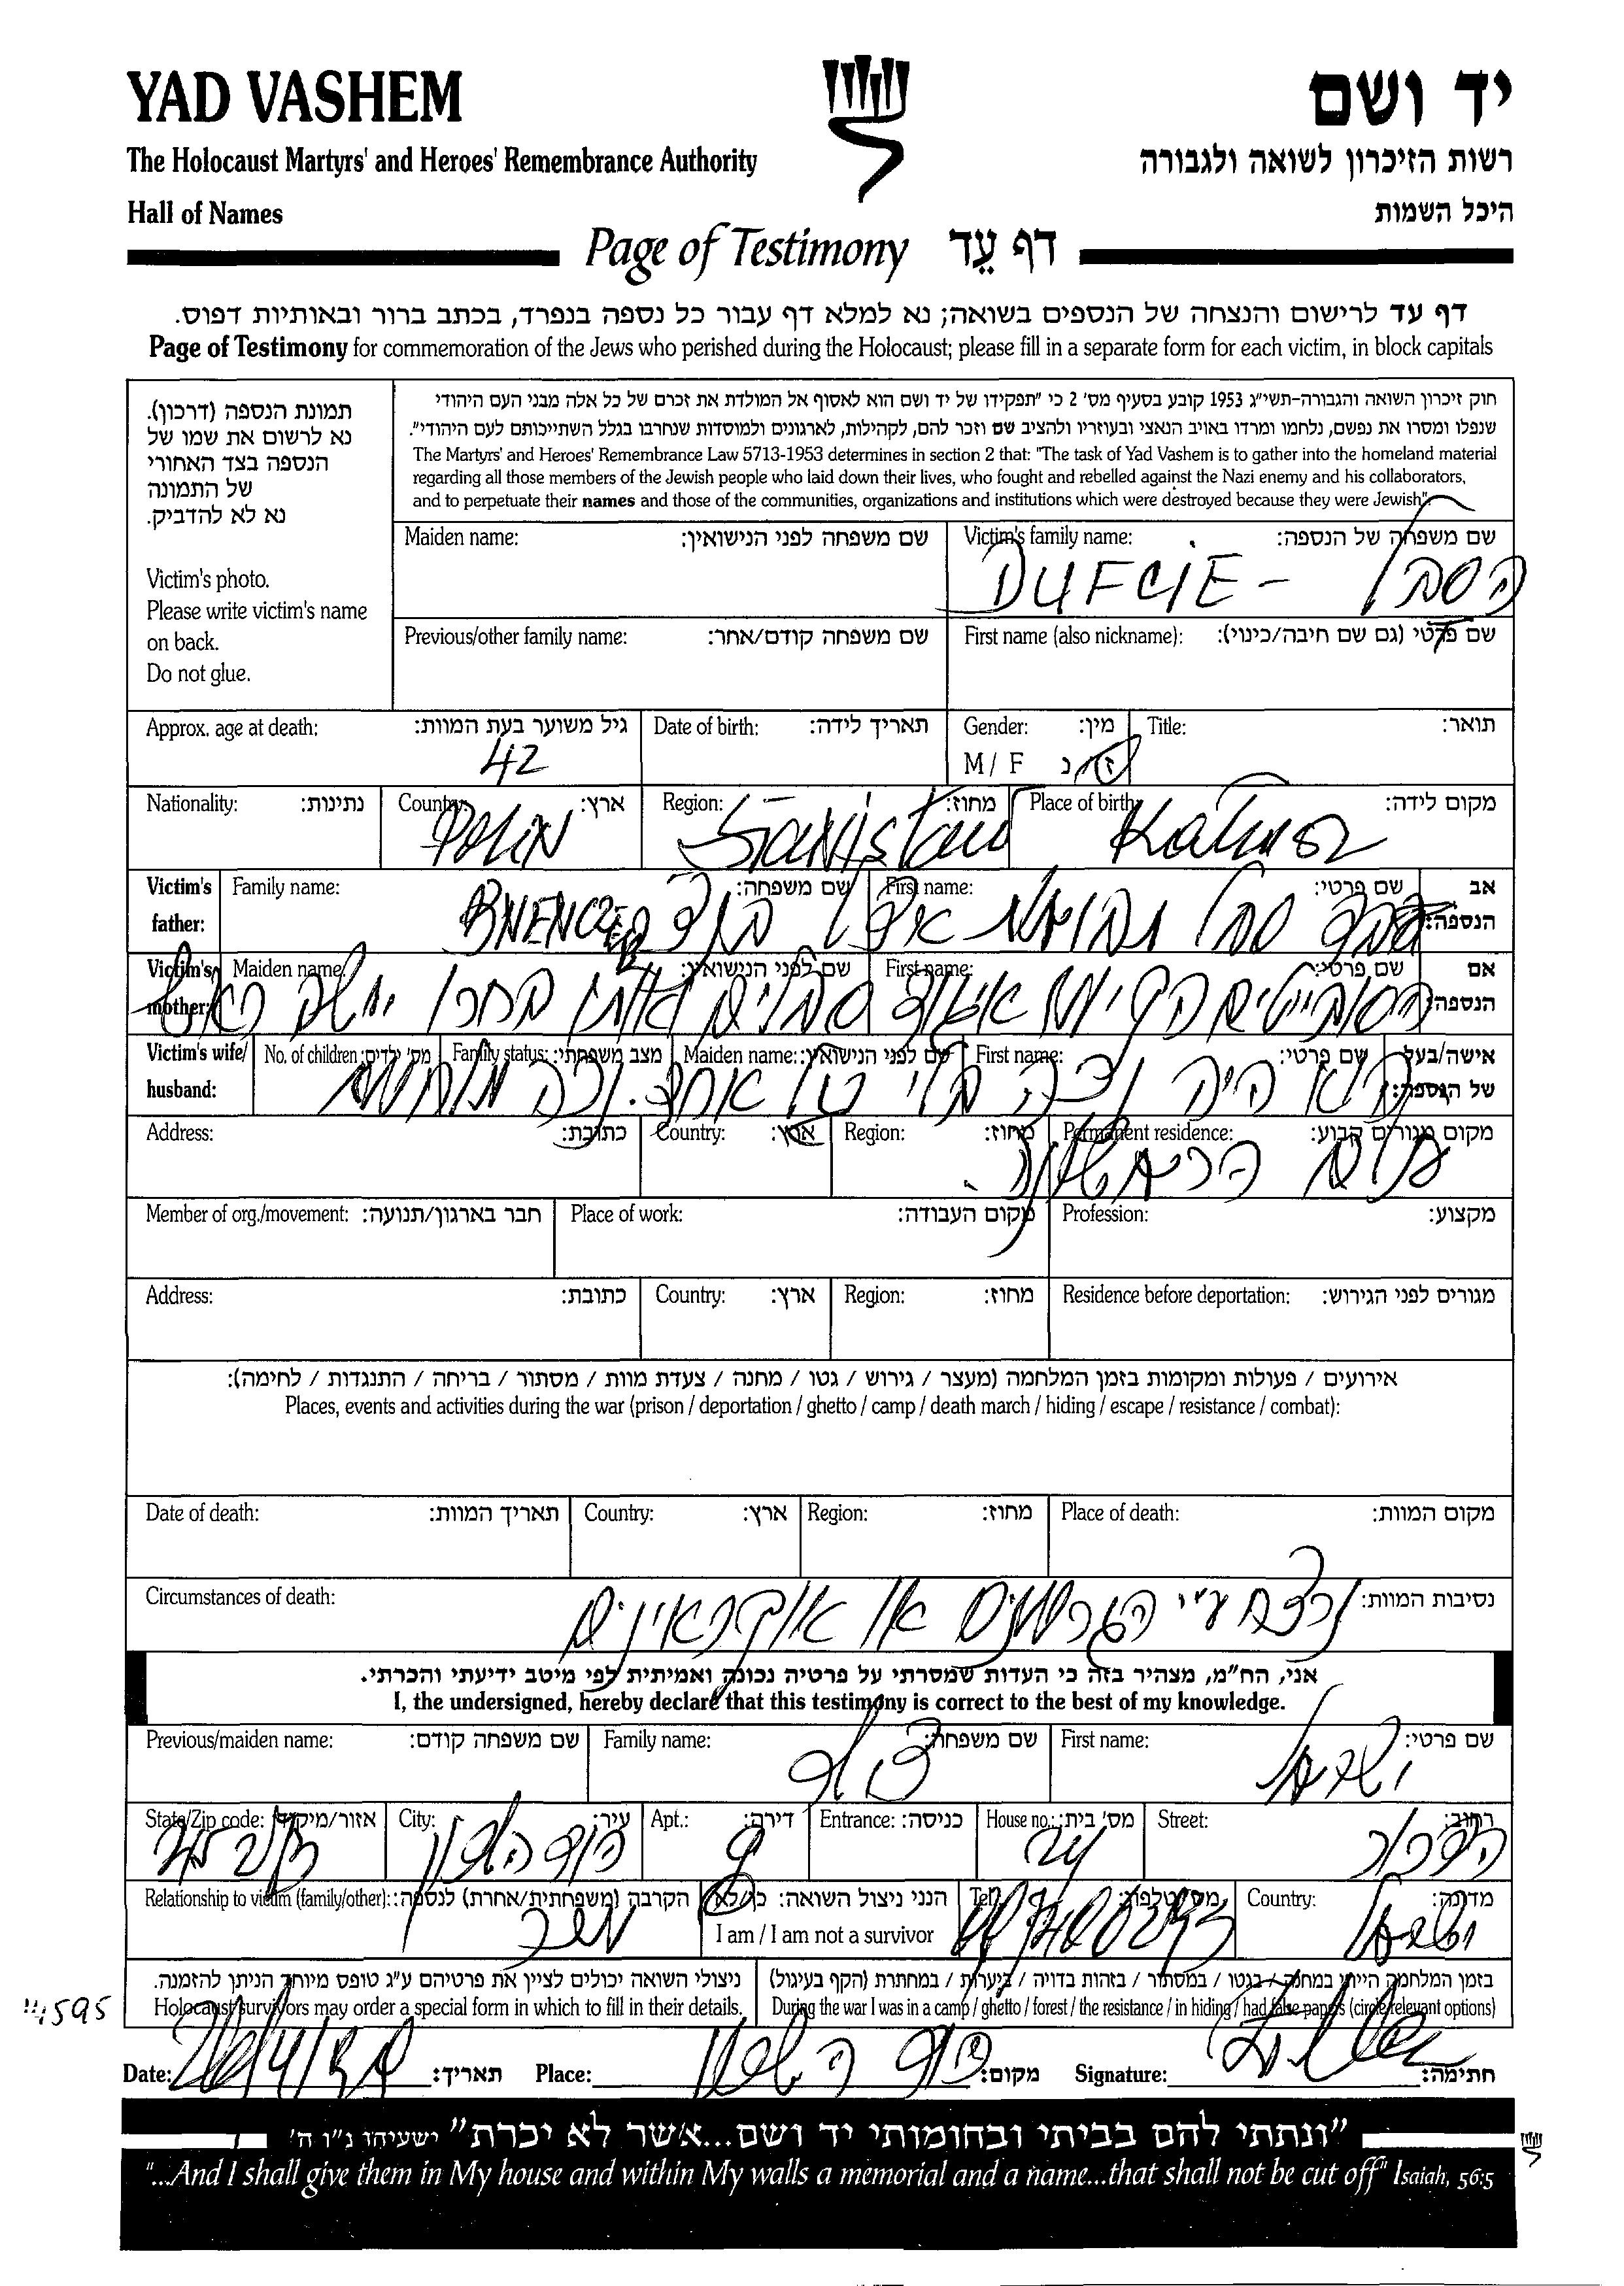 YAD VASHEM
יד ושם
The Holocaust Martyrs' and Heroes' Remembrance Authority
רשות הזיכרון לשואה ולגבורה
Hall of Names
היכל השמות
Page of Testimony דף עֵד
דף עד לרישום והנצחה של הנספים בשואה; נא למלא דף עבור כל נספה בנפרד, בכתב ברור ובאותיות דפוס.
Page of Testimony for commemoration of the Jews who perished during the Holocaust; please fill in a separate form for each victim, in block capitals
תמונת הנספה (דרכון).
נא לרשום את שמו של
הנספה בצד האחורי
של התמונה
נא לא להדביק.
Victim's photo.
Please write victim's name
on back.
Do not glue.
חוק זיכרון השואה והגבורה-תשי״ג 1953 קובע בסעיף מס' 2 כי "תפקידו של יד ושם הוא לאסוף אל המולדת את זכרם של כל אלה מבני העם היהודי
שנפלו ומסרו את נפשם, נלחמו ומרדו באויב הנאצי ובעוזריו ולהציב שם וזכר להם, לקהילות, לארגונים ולמוסדות שנחרבו בגלל השתייכותם לעם היהודי".
The Martyrs' and Heroes' Remembrance Law 5713-1953 determines in section 2 that: "The task of Yad Vashem is to gather into the homeland material
regarding all those members of the Jewish people who laid down their lives, who fought and rebelled against the Nazi enemy and his collaborators,
and to perpetuate their names and those of the communities, organizations and institutions which were destroyed because they were Jewish".
Maiden name: שם משפחה לפני הנישואין:
Victim's family name: שם משפחה של הנספה:
DUFCIE - הסבל
Previous/other family name: שם משפחה קודם/אחר:
First name (also nickname): שם פרטי (גם שם חיבה/כינוי):
Approx. age at death: גיל משוער בעת המוות:
42
Date of birth: תאריך לידה:
Gender: מין:
M / F ז / נ
Title: תואר:
Nationality: נתינות:
Country: ארץ:
פולין
Region: מחוז:
Stanislau
Place of birth: מקום לידה:
Kalusz
Victim's father: Family name: שם משפחה: First name: שם פרטי: אב הנספה:
Victim's mother: Maiden name: שם לפני הנישואין: First name: שם פרטי: אם הנספה:
Victim's wife/ husband: No. of children: מס' ילדים: Family status: מצב משפחתי: Maiden name: שם לפני הנישואין: First name: שם פרטי: אישה/בעל של הנספה:
הוא היה נכה בלי רגל אחת. נכה מלחמת
Address: כתובת: Country: ארץ: Region: מחוז: Permanent residence: מקום מגורים קבוע:
עולם הראשונה.
Member of org./movement: חבר בארגון/תנועה: Place of work: מקום העבודה: Profession: מקצוע:
Address: כתובת: Country: ארץ: Region: מחוז: Residence before deportation: מגורים לפני הגירוש:
אירועים / פעולות ומקומות בזמן המלחמה (מעצר / גירוש / גטו / מחנה / צעדת מוות / מסתור / בריחה / התנגדות / לחימה):
Places, events and activities during the war (prison / deportation / ghetto / camp / death march / hiding / escape / resistance / combat):
Date of death: תאריך המוות: Country: ארץ: Region: מחוז: Place of death: מקום המוות:
Circumstances of death: נסיבות המוות:
נרצח ע״י הגרמנים או אוקראינים
אני, הח״מ, מצהיר בזה כי העדות שמסרתי על פרטיה נכונה ואמיתית לפי מיטב ידיעתי והכרתי.
I, the undersigned, hereby declare that this testimony is correct to the best of my knowledge.
Previous/maiden name: שם משפחה קודם: Family name: שם משפחה: First name: שם פרטי:
ישראל
State/Zip code: אזור/מיקוד City: עיר: Apt.: דירה: Entrance: כניסה: House no.: מס' בית: Street: רחוב:
הוד השרון
Relationship to victim (family/other): הקרבה (משפחתית/אחרת) לנספה:
מכר
הנני ניצול השואה: כן/לא
I am / I am not a survivor
Tel.: מס' טלפון:
Country: מדינה:
ישראל
ניצולי השואה יכולים לציין את פרטיהם ע״ג טופס מיוחד הניתן להזמנה.
Holocaust survivors may order a special form in which to fill in their details.
בזמן המלחמה הייתי במחנה / בגטו / במסתור / בזהות בדויה / ביערות / במחתרת (הקף בעיגול)
During the war I was in a camp / ghetto / forest / the resistance / in hiding / had false papers (circle relevant options)
Date: תאריך: Place: הוד השרון מקום: Signature: חתימה:
"ונתתי להם בביתי ובחומותי יד ושם...אשר לא יכרת" ישעיהו נ״ו ה'
"...And I shall give them in My house and within My walls a memorial and a name...that shall not be cut off" Isaiah, 56:5